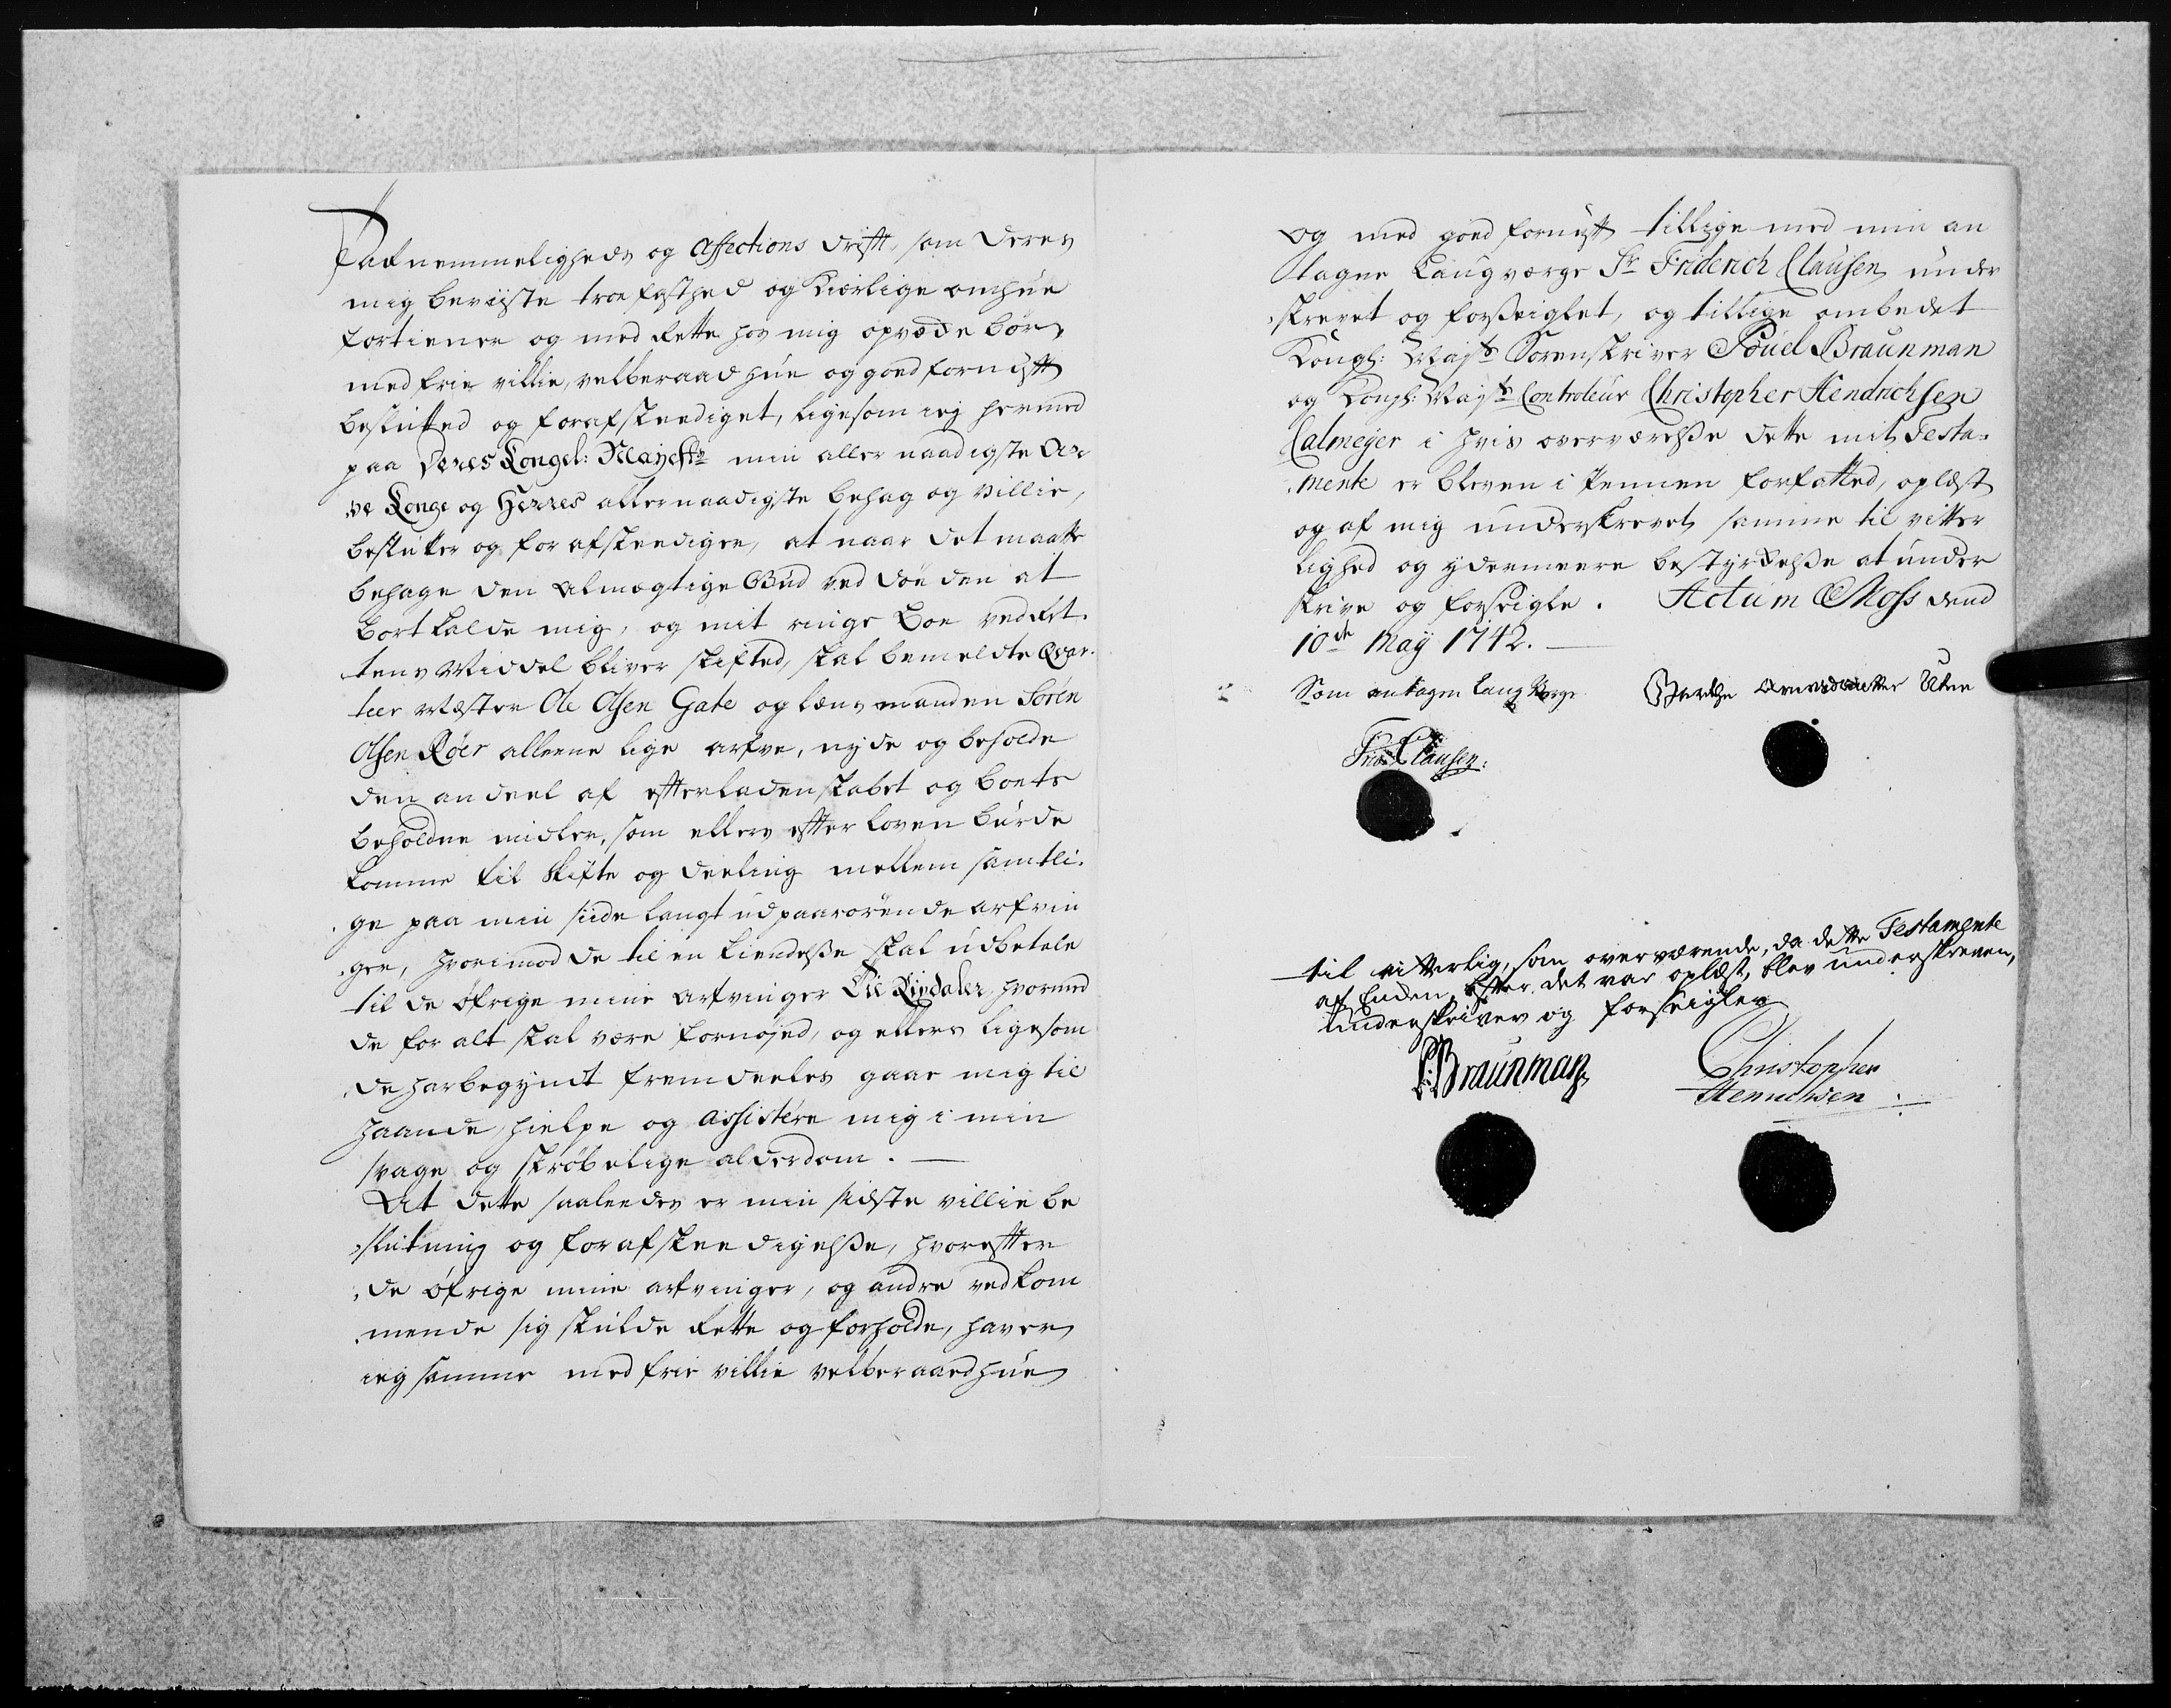 Taknemmeligheds og Affections drift, som deres
mig beviiste troefasthed og Kiærlige omhue
fortiener og med Rette hos mig opvæcke bör,
med frie villie, velberaad hue og goed fornuft
beslutted og forafskeediget, ligesom ieg hermed
paa Deres Kongel: Mayests min aller naadigste Ar-
ve Konge og Herres allernaadigste behag og Villie,
beslutter og for afskeediger, at naar det maatte
behage den Almægtige Gud ved döeden at
bortkalde mig, og mit ringe Boe ved Ret-
tens Middel bliver skifted, skal bemeldte Qvar-
teer Mæster Ole Olsen Gate og lænsmanden Sören
Olsen Röer alleene lige arfve, nyde og beholde
den andeel af efterladenskabet og boets
beholdne midler, som ellers efter loven burde
komme til Skifte og deeling mellem samtli-
ge paa min side langt ud paarörende arfvin
ger, hvorimod de til en kiendelse skal udbetale
til de öfrige mine arfvinger Tie Rixdaler, hvormed
de for alt skal være fornöjed, og ellers ligesom
de har begyndt fremdeeles gaae mig til
haande, hielpe og assistére mig i min
svage og skröbelige alderdom. —
At dette saaleedes er min sidste villie be
slutning og forafskeedigelse, hvorefter
de öfrige mine arfvinger, og andre vedkom
mende sig skulde Rette og forholde, haver
ieg samme med frie villie velberaad hue
og med goed fornuft tillige med min an
tagne Laugværge Sr Friderich Clausen under
skrevet og forseiglet, og tillige ombedet
Kongl: Mayts Sorenskriver Pouel Braunman
og Kongl: Mayts Controleur Christopher Hendrichsen
Calmeyer i hvis overværelse dette mit Testa-
mente er bleven i Pennen forfatted, oplæst
og af mig underskrevet, samme til vitter
lighed og ydermeere bestyrkelse at under
skrive og forseigle. Actum Moss dend
10de May 1742. —
Som antagen laug Værge
Frid: Clausen:
til vitterlig, som overværende, da dette Testamente
af Enden, efter det var oplæst, blev underskreven,
underskriver og forseigler
P: Braunman
Christopher
Henrichsen